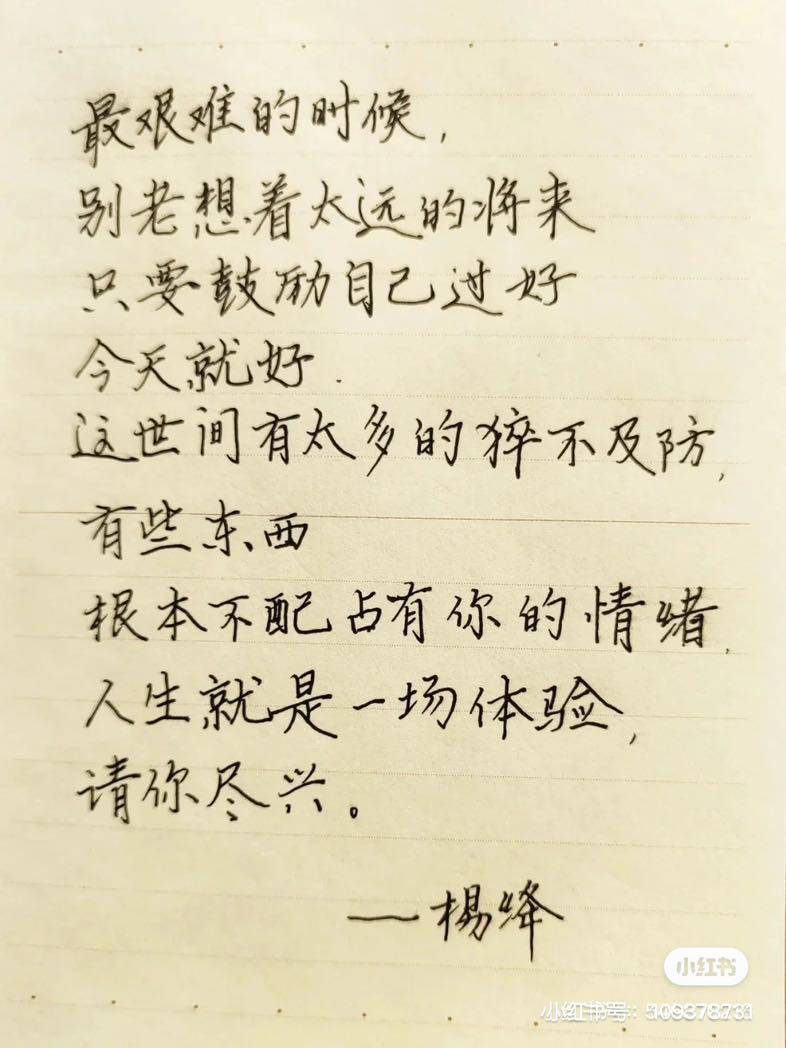 最艰难的时候,
别老想着太远的将来
只要鼓励自己过好
今天就好.
这世间有太多的猝不及防,
有些东西
根本不配占有你的情绪,
人生就是一场体验,
请你尽兴。
——杨绛
小红书
小红书号: